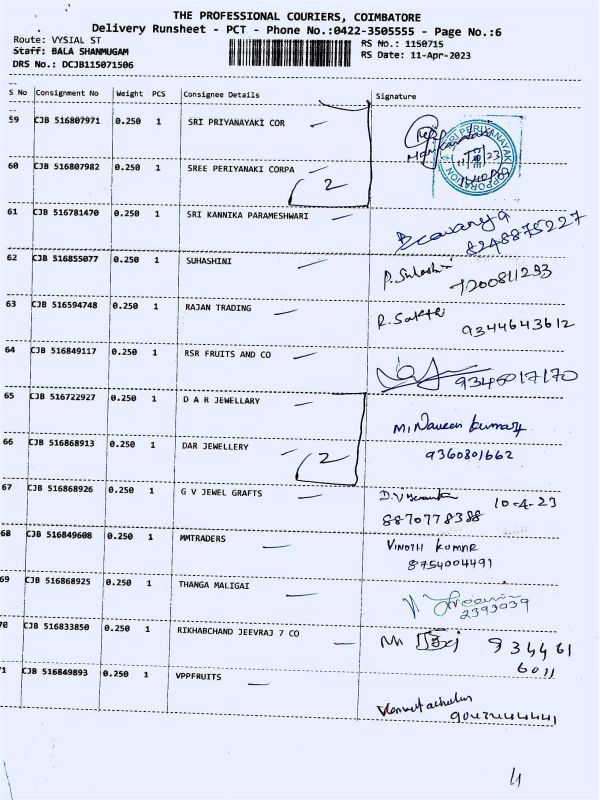 THE PROFESSIONAL COURIERS, COIMBATORE
Delivery Runsheet - PCT - Phone No.:0422-3505555 - Page No.:6
Route: VYSIAL ST RS No.: 1150715
Staff: BALA SHANMUGAM RS Date: 11-Apr-2023
DRS No.: DCJB115071506
S No Consignment No Weight PCS Consignee Details Signature
59 CJB 516807971 0.250 1 SRI PRIYANAYAKI COR
60 CJB 516807982 0.250 1 SREE PERIYANAKI CORPA
2
61 CJB 516781470 0.250 1 SRI KANNIKA PARAMESHWARI
8248875227
62 CJB 516855077 0.250 1 SUHASHINI P. Suhashini
7200811293
63 CJB 516594748 0.250 1 RAJAN TRADING R. Sakthi
9344643612
64 CJB 516849117 0.250 1 RSR FRUITS AND CO
9345017170
65 CJB 516722927 0.250 1 D A R JEWELLARY M. Naveen Kumar
66 CJB 516868913 0.250 1 DAR JEWELLERY 9360801662
2
67 CJB 516868926 0.250 1 G V JEWEL GRAFTS 10-4-23
8870778388
68 CJB 516849608 0.250 1 MMTRADERS VINOTH KUMAR
8754004491
69 CJB 516868925 0.250 1 THANGA MALIGAI
2393039
70 CJB 516833850 0.250 1 RIKHABCHAND JEEVRAJ 7 CO 934461
6011
71 CJB 516849893 0.250 1 VPPFRUITS